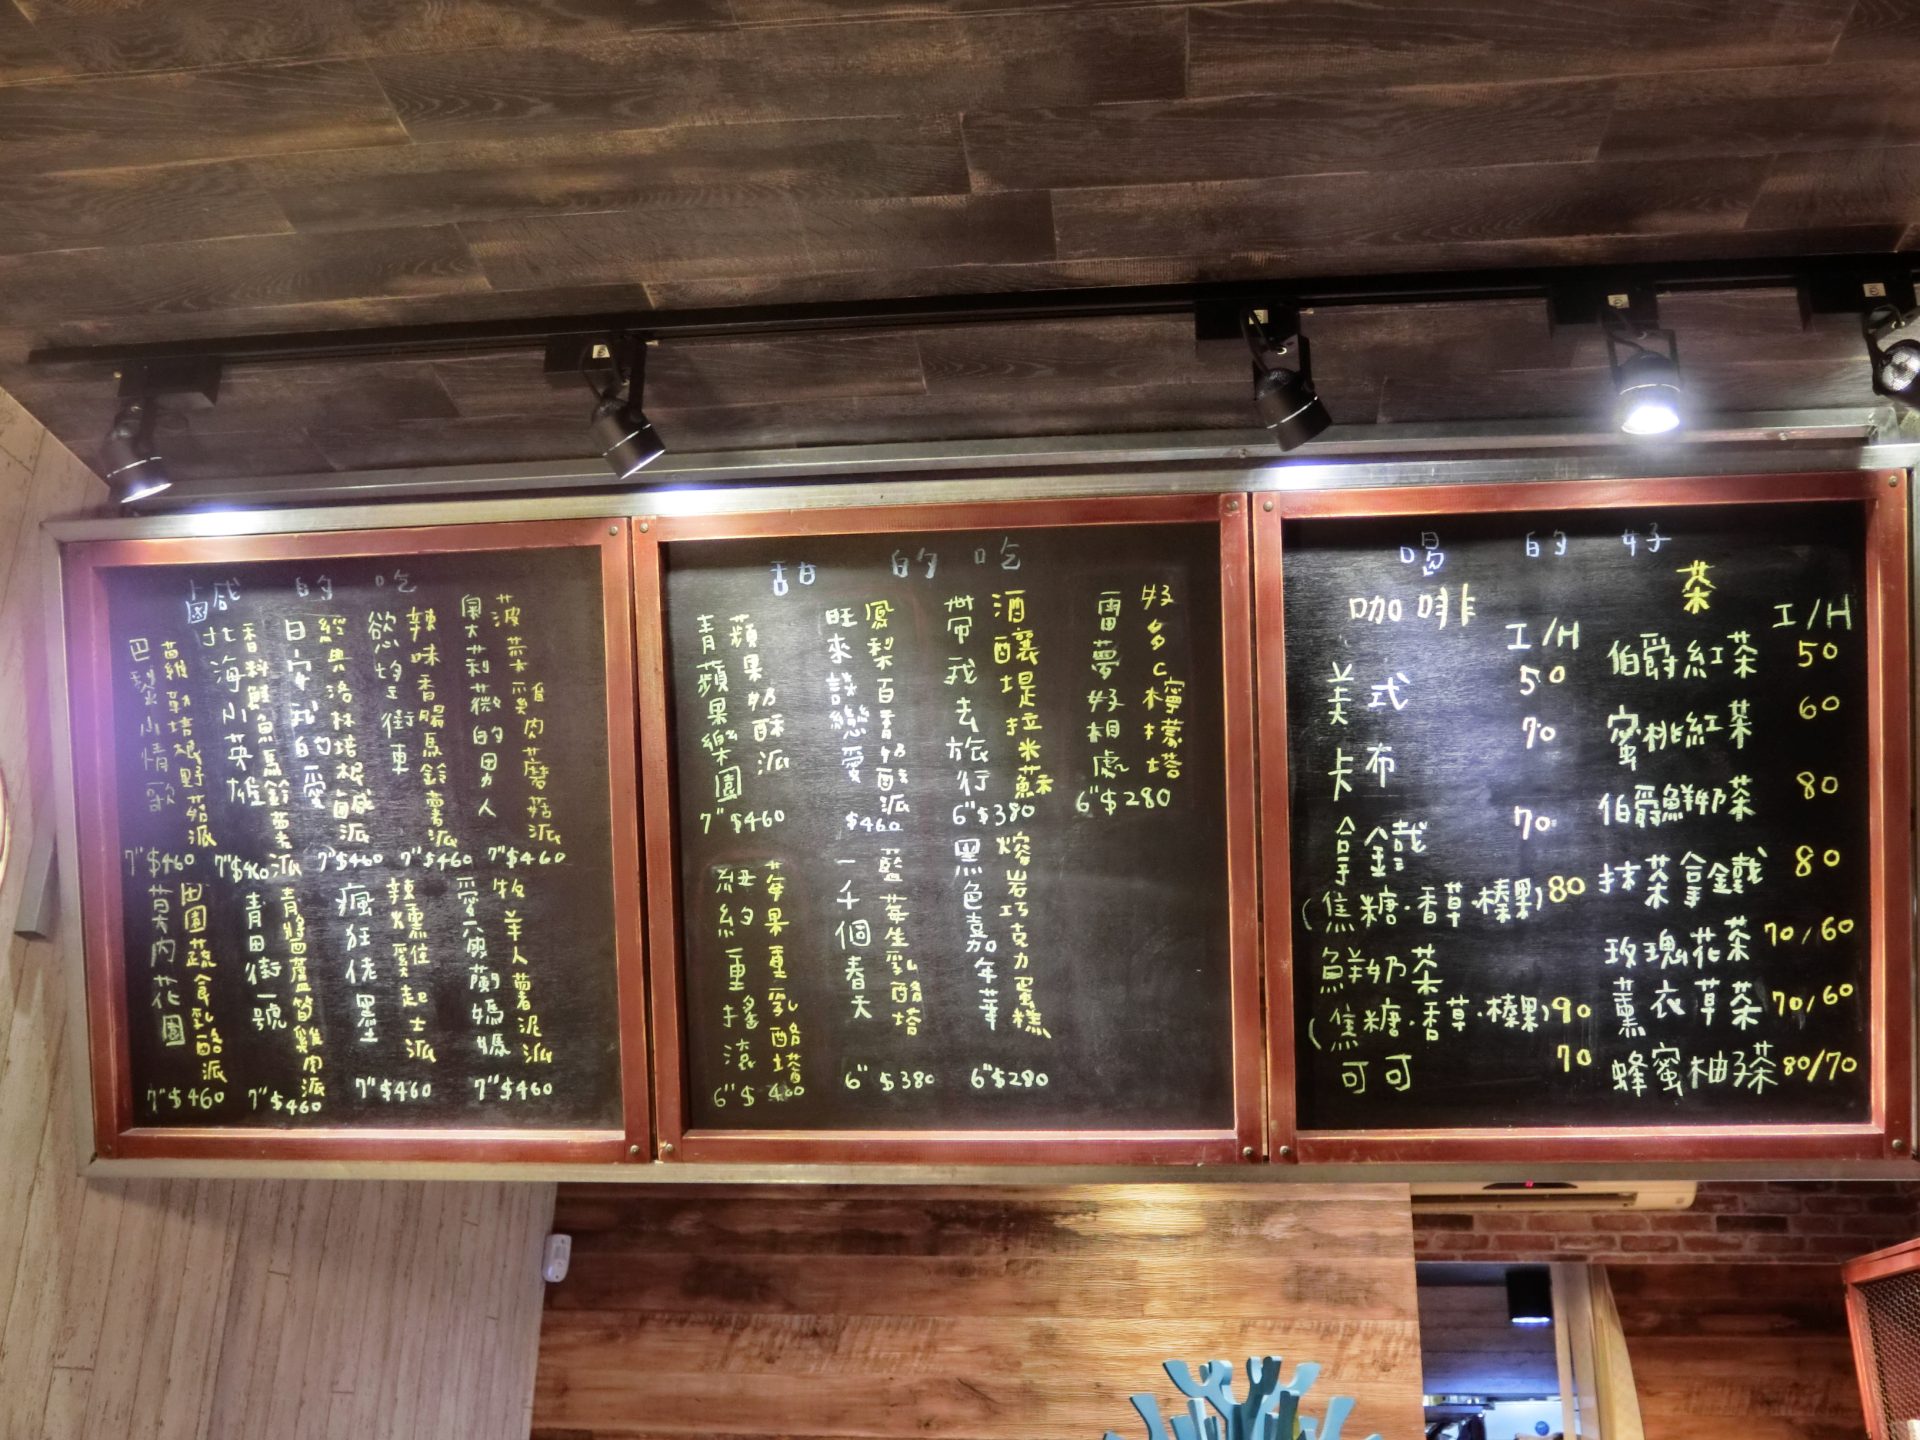 吃的鹹
菠菜雞肉蘑菇派
奧大利微的男人
7"$460
辣味香腸馬鈴薯派
慾望街車
7"$460
經典洛林培根鹹派
白字我的自愛
7"$460
香料鮭魚馬鈴薯派
北海小英雄
7"$460
蘿勒培根野菇派
巴黎小情歌
7"$460
牧羊人薯泥派
愛爾蘭媽媽
7"$460
辣燻雞起士派
瘋狂佬墨
7"$460
青醬蘆筍雞肉派
青田街一號
7"$460
田園蔬食乳酪派
莫內花園
7"$460
吃的甜
好多C檸檬塔
雷夢好相處
6"$280
酒釀堤拉米蘇
帶我去旅行
6"$380
鳳梨百香奶酥派
旺來談戀愛
$460
蘋果奶酥派
青蘋果樂園
7"$460
熔岩巧克力蛋糕
黑色嘉年華
6"$280
藍莓生乳酪塔
一千個春天
6"$380
莓果重乳酪塔
紐約重搖滾
6"$460
喝的 好
咖啡
I/H
美式 50
卡布 70
拿鐵 70
(焦糖·香草·榛果) 80
鮮奶茶
(焦糖·香草·榛果) 90
可可 70
茶
I/H
伯爵紅茶 50
蜜桃紅茶 60
伯爵鮮奶茶 80
抹茶拿鐵 80
玫瑰花茶 70/60
薰衣草茶 70/60
蜂蜜柚子茶 80/70